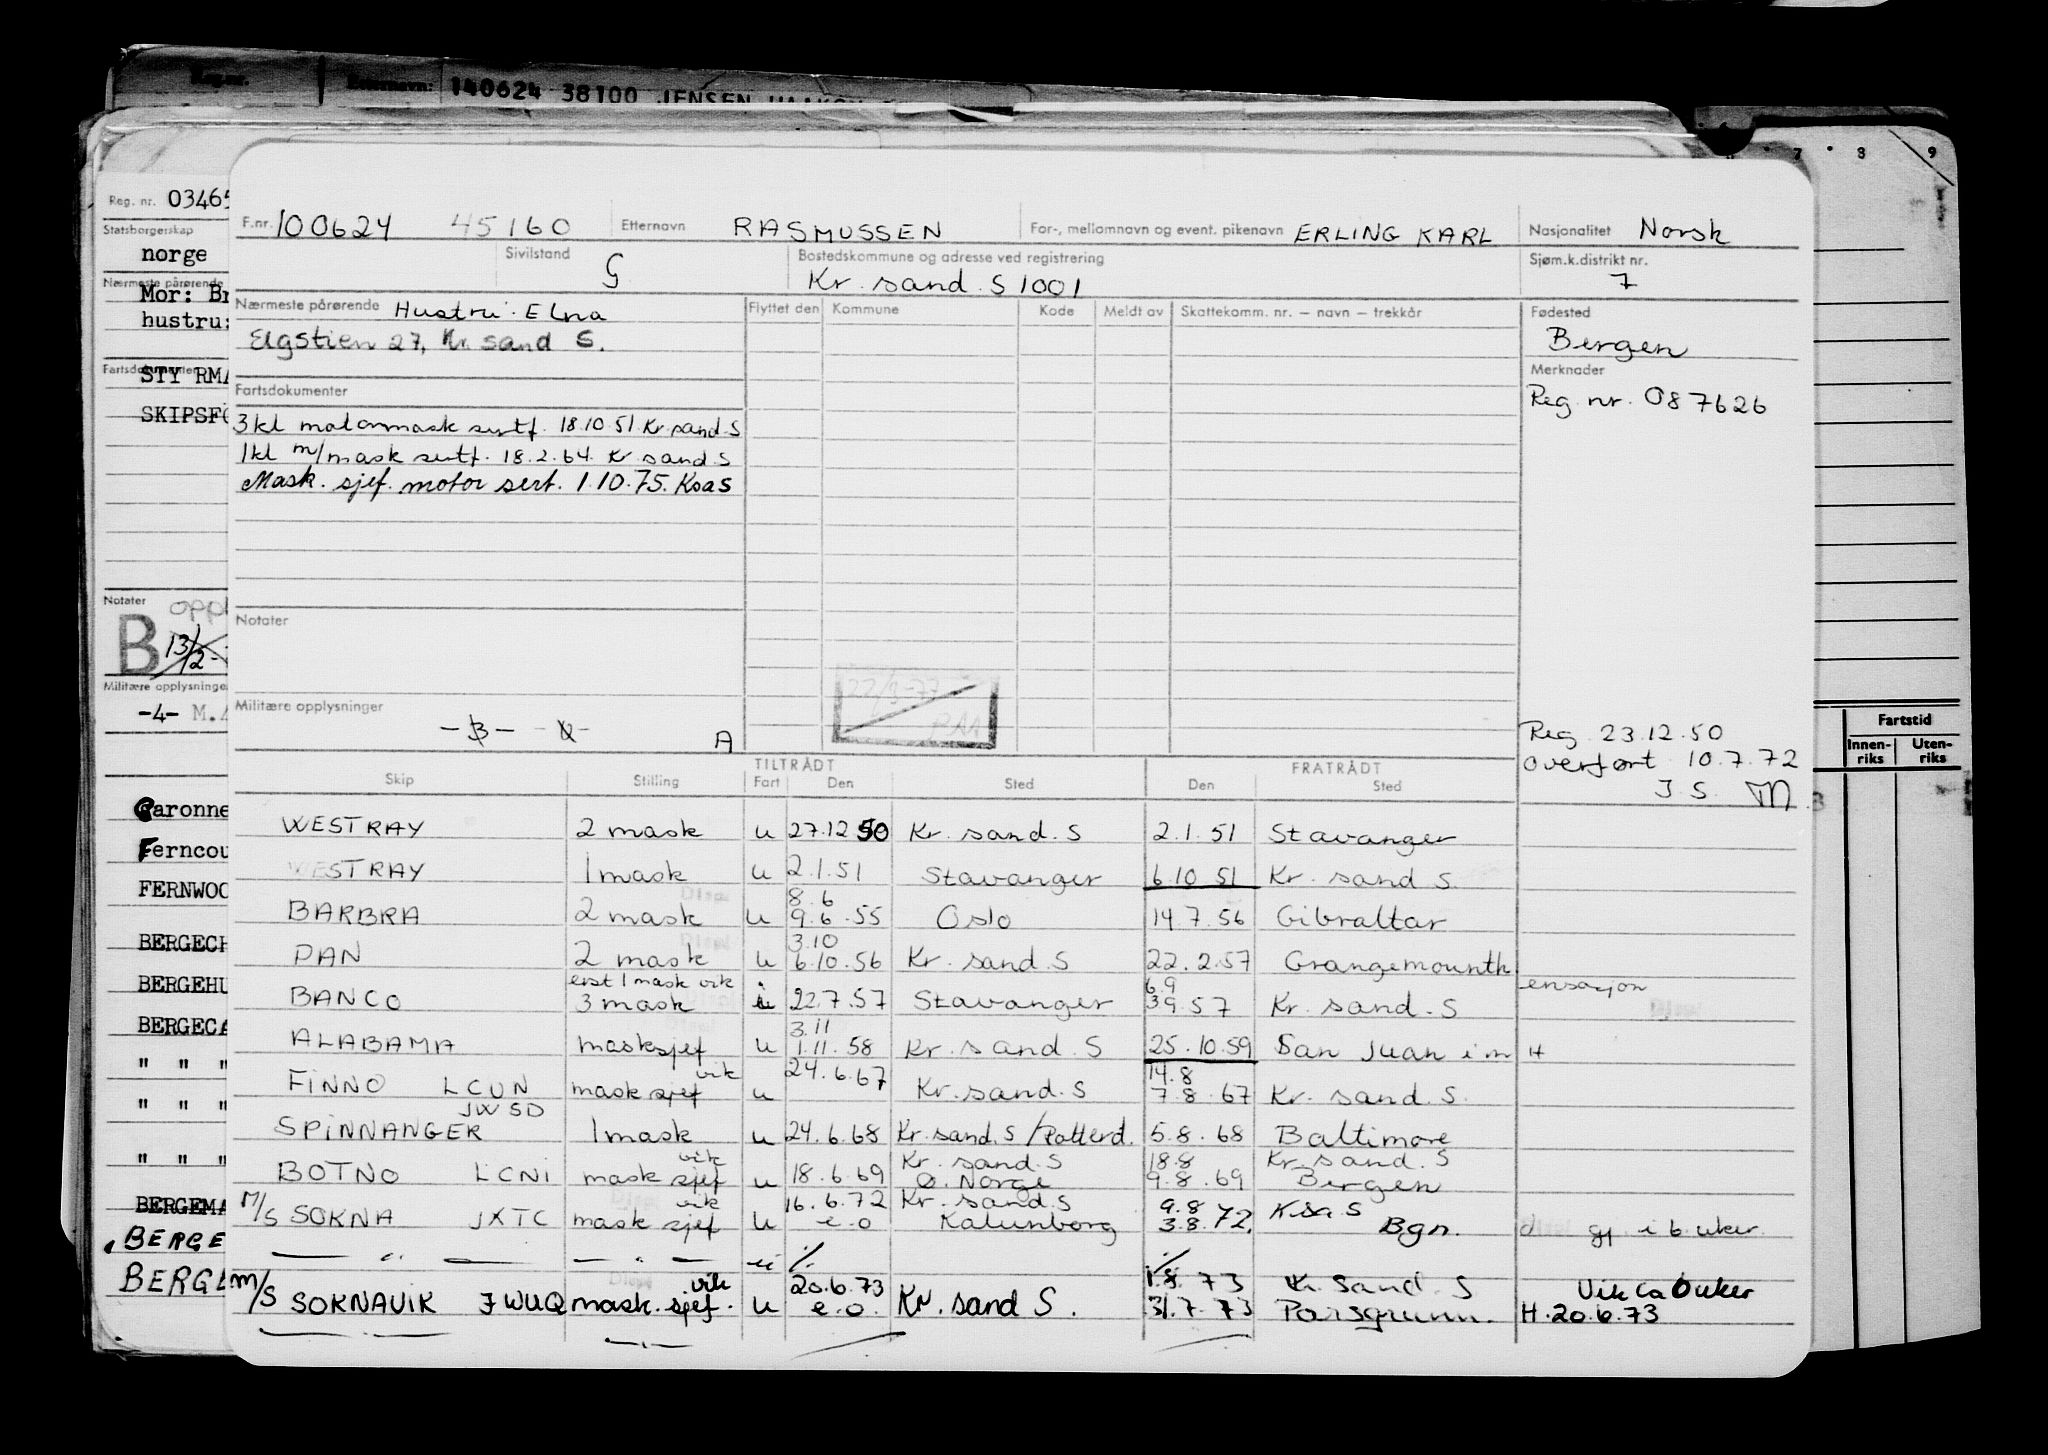 Etternavn: 140624 38100 JENSEN
7 8 9
Reg. nr. 03465
Statsborgerskap
norge
Nærmeste pårørende
Mor: Br
hustru:
Fartsdokumenter
STYRMA
SKIPSFØ
Notater
B 13/2-
Militære opplysninge
-4- M.
Garonne
Ferncou
FERNWOO
BERGECH
BERGEHU
BERGECA
" " "
" " "
" " "
BERGEMA
BERGE
BERGE
Fartstid
Innen-riks Uten-riks
F.nr. 100624 45160 Etternavn RASMUSSEN For-, mellomnavn og event. pikenavn ERLING KARL Nasjonalitet Norsk
Sivilstand G Bostedskommune og adresse ved registrering Kr. sand. S 1001 Sjøm.k.distrikt nr. 7
Nærmeste pårørende Hustru: Elna
Elgstien 27, Kr. sand S.
Flyttet den Kommune Kode Meldt av Skattekomm. nr. – navn – trekkår
Fødested
Bergen
Merknader
Reg. nr. 087626
Fartsdokumenter
3 kl motormask sertf. 18.10.51. Kr.sand.S
1 kl m/mask sertf. 18.2.64. Kr sand.S
Mask. sjef. motor sert. 1.10.75. Ksas
Notater
22/3-77
Militære opplysninger
-B- -V- A
Reg. 23.12.50
Overført 10.7.72
I S. M
TILTRÅDT FRATRÅDT
Skip Stilling Fart Den Sted Den Sted
WESTRAY 2 mask u 27.12 50 Kr. sand. S 2.1.51 Stavanger
WESTRAY 1 mask u 2.1.51 Stavanger 6.10 51 Kr. sand S.
BARBRA 2 mask u 8.6 9.6.55 Oslo 14.7.56 Gibraltar
PAN 2 mask u 3.10 6.10.56 Kr. sand. S 22.2.57 Grangemounth
BANCO erst 1 mask vik 3 mask i 22.7.57 Stavanger 6.9 3 9 57 Kr. sand. S ensasjon
ALABAMA masksjef u 3.11 1.11.58 Kr. sand. S 25.10.59 San Juan i m H
FINNO LCUN mask sjef vik u 24.6.67 Kr. sand. S 14.8 7.8.67 Kr. sand. S.
SPINNANGER JWSD 1 mask u 24.6.68 Kr.sand.S/Rotterd. 5.8.68 Baltimore
BOTNO LCNI mask sjef vik u 18.6.69 Kr. sand. S Ø. Norge 18.8 9.8.69 Kr. sand. S Bergen
M/S SOKNA JXTC mask sjef vik u 16.6.72 e.o Kr. sand. S Kalunborg 9.8 3.8.72. Ksa S Bgn. gj i 6 uker
— " — — " — " ./. ./.
M/S SOKNAVIK JWUQ mask. sjef. vik u 20.6.73 e.o. Kr. sand S. 1.8.73 31.7.73 Kr. Sand. S Porsgrunn. Vik ca 6 uker H. 20.6.73